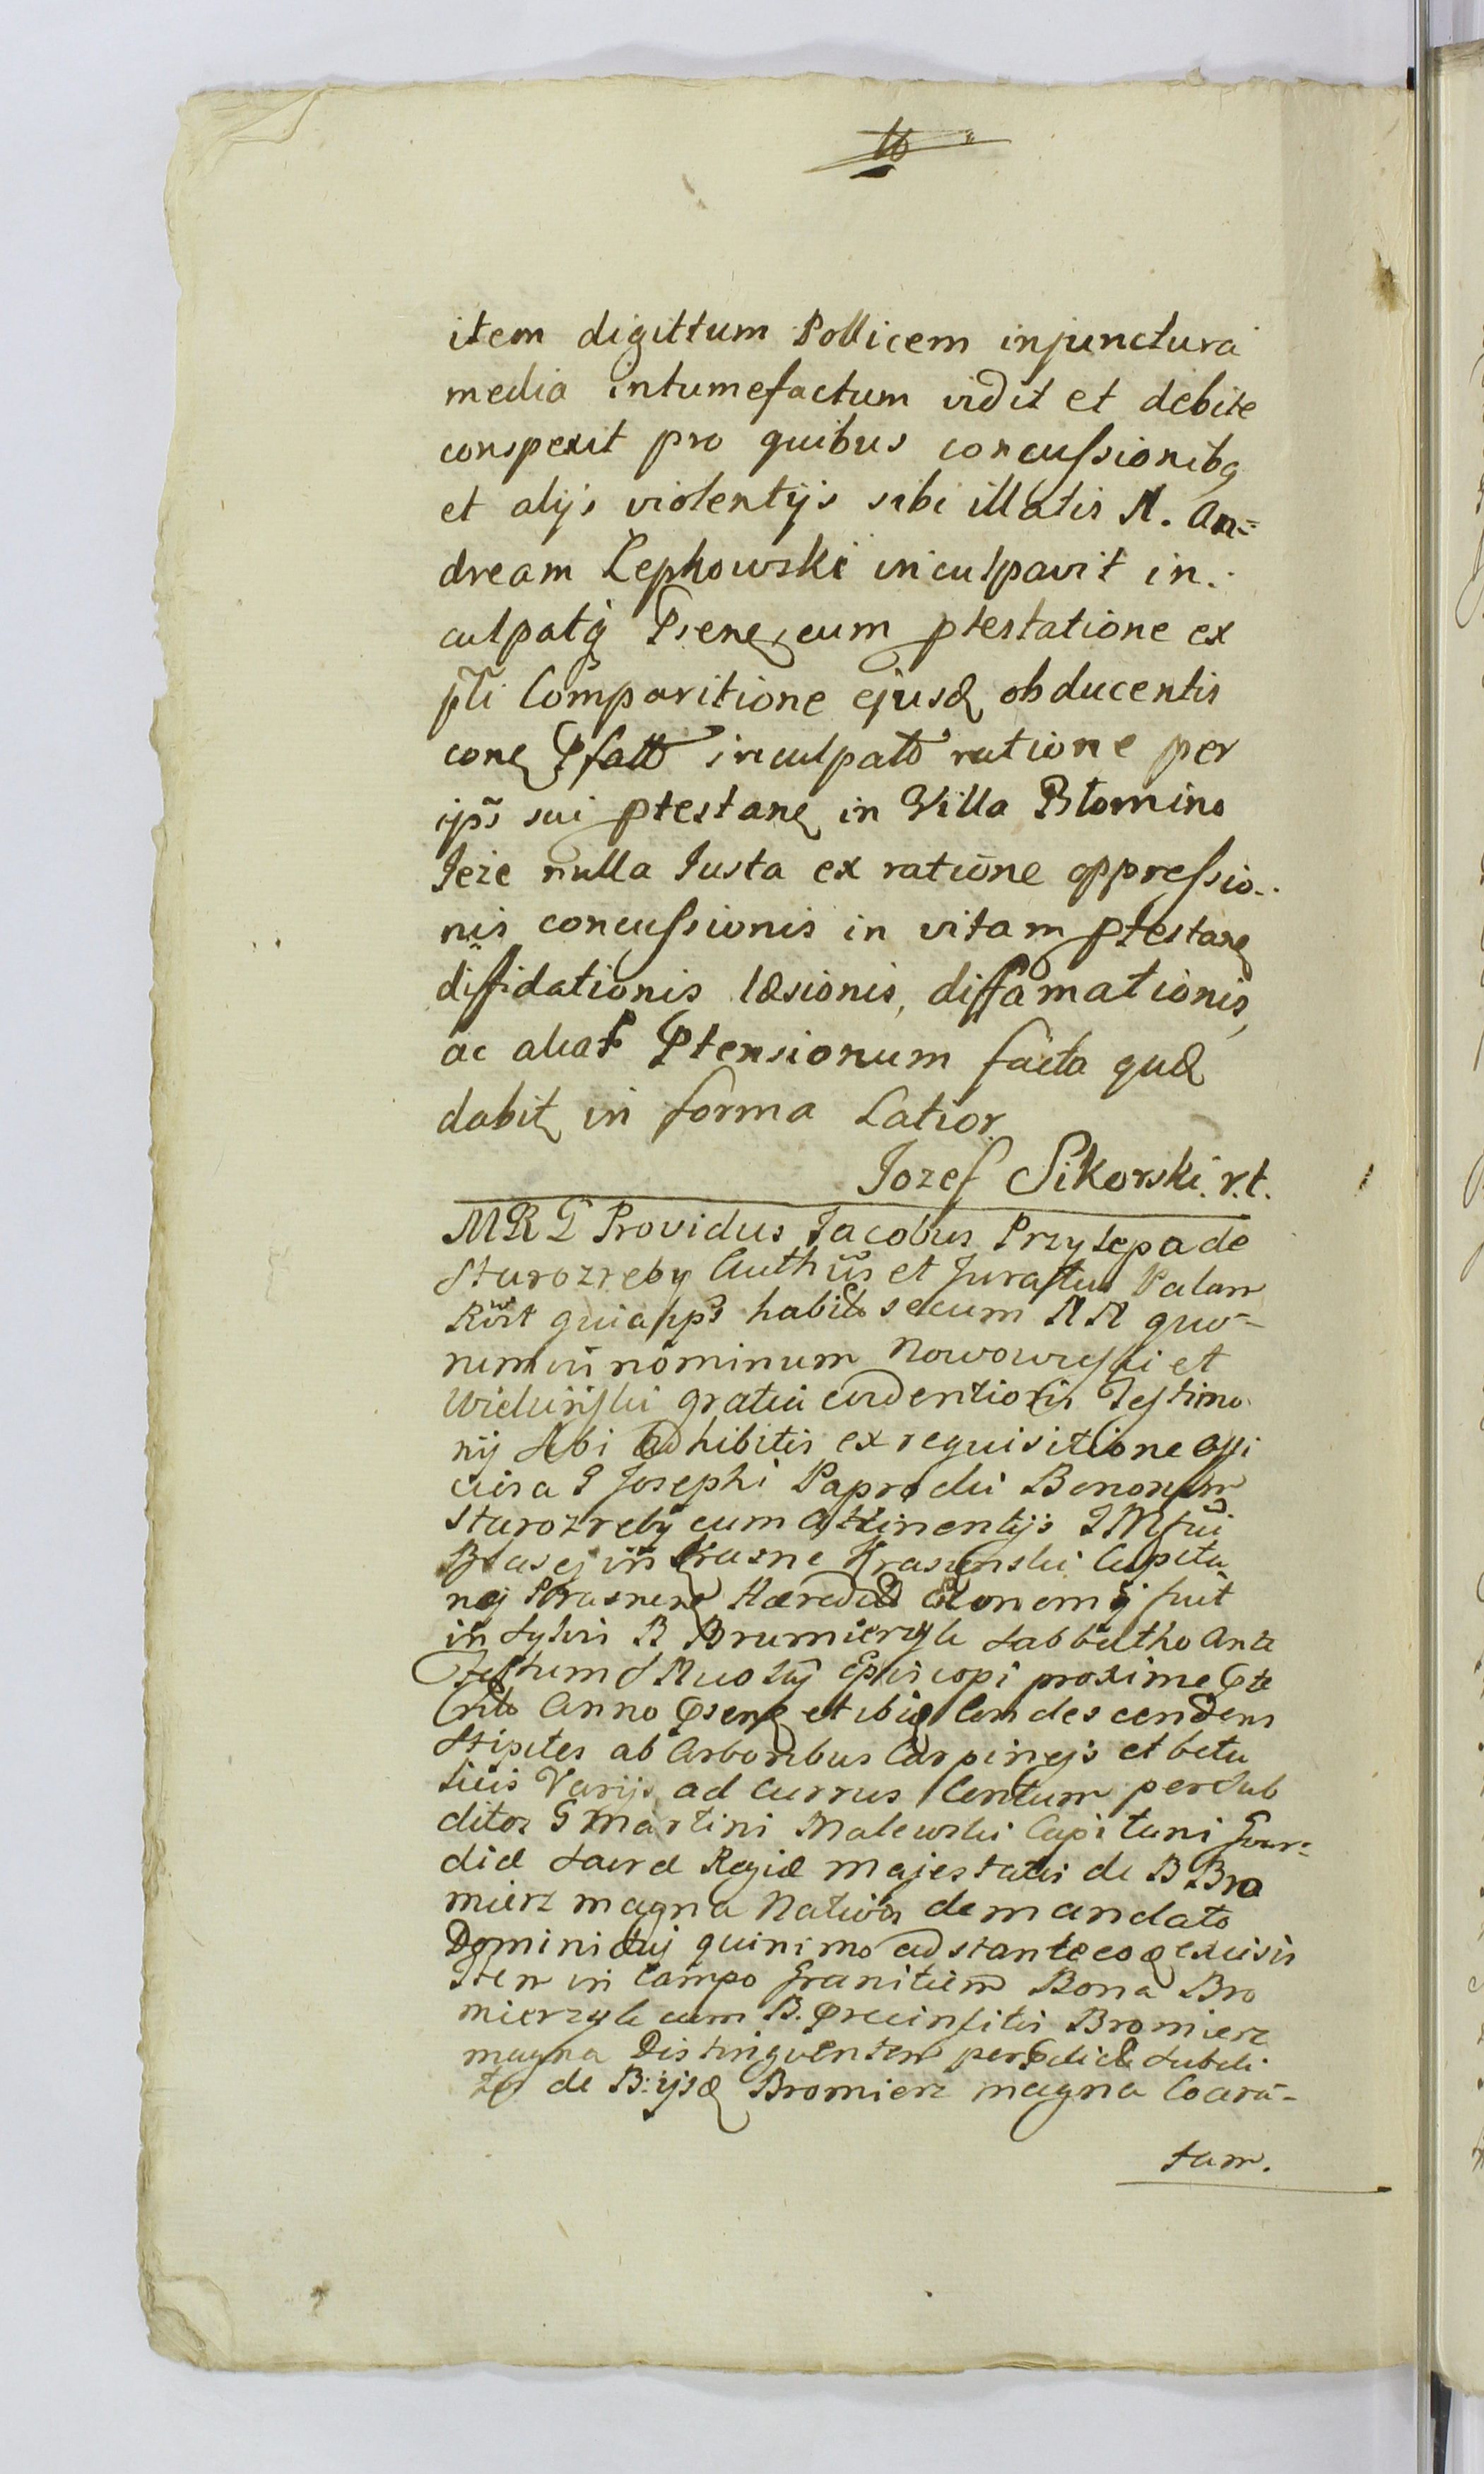 16
item digittum Pollicem injunctura
media intumefactum vidit et debite
conspexit pro quibus concussionibq
et alijs violentijs sibi illatis N. An=
dream Zephowski inculpavit in.
culpatq Psene cum ptestatione ex
pti Comparitione ejusd obducentis
conq Pfatt inculpato ratione per
ips sui ptestane in Villa Btomino
Jeze nulla Justa ex ratione oppressio..
nis concussionis in vitam ptestane
diffidationis læsionis, diffamationis,
ac aliar Ptensionum facta qud
dabit in forma Latior.
Jozef Sikorski. r.t.
MRG Providus Jacobus Przylepa de
Starozreby Auth et Juratus Palam
Rört quia ips habit secum NN quo-
rum nominum Nowowieyski et
Widuiński gratia evidentioris Testimo
nij sibi adhibitis ex requisitione offi
ciosa G Josephi Paprocki Bonorum
Starozreby cum attinentijs JM
Blasej in Krasne Krasinski Capita
nej Prasnens Hæredis Œconomi fuit
in Sylvis B Bromierzyk Sabbatho Ante
Festum S Nicolaij Episcopi proxime Pte
rito Anno Psene et ibid Condescendens
Stipites ab Arboribus Carpinejs et betu
licis Varijs ad Currus Centum per Sub
ditos G Martini Malewski Capitani Gvar=
diæ Sacræ Regiæ Majestatis de B Bro
mierz magna Nativos de mandato
Domini quinimo adstante eoq excisis
Item in Campo Granitiem Bona Bro
mierzyk cum B. Precinsitis Bromierz
magna Distinguentem per Pdict Subdi
tos de B: ijsd Bromierz magna Coara-
tam.